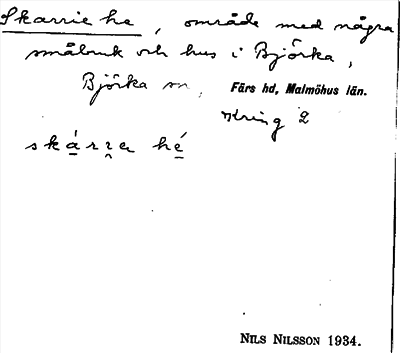 Skarrie he, område med några
småbruk och hus i Björka,
Björka sn, Färs hd, Malmöhus län.
Kring 2
skárre hé
NILS NILSSON 1934.